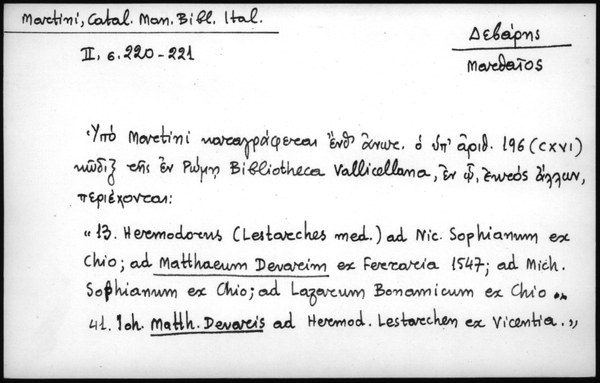 Martini, Catal. Man. Bibl. Ital.
II, σ. 220-221
Δεβάρης
Ματθαῖος
Ὑπὸ Martini καταγράφεται ἔνθ' ἄνωτ. ὁ ὑπ' ἀριθ. 196 (CXVI)
κῶδιξ τῆς ἐν Ρώμῃ Bibliotheca Vallicellana, ἐν ᾧ, ἐκτὸς ἄλλων,
περιέχονται:
"13. Hermodorus (Lestarches med.) ad Nic. Sophianum ex
Chio; ad Matthaeum Devarim ex Ferraria 1547; ad Mich.
Sophianum ex Chio; ad Lazarum Bonamicum ex Chio ...
41. Ioh. Matth. Devaris ad Hermod. Lestarchen ex Vicentia.,,